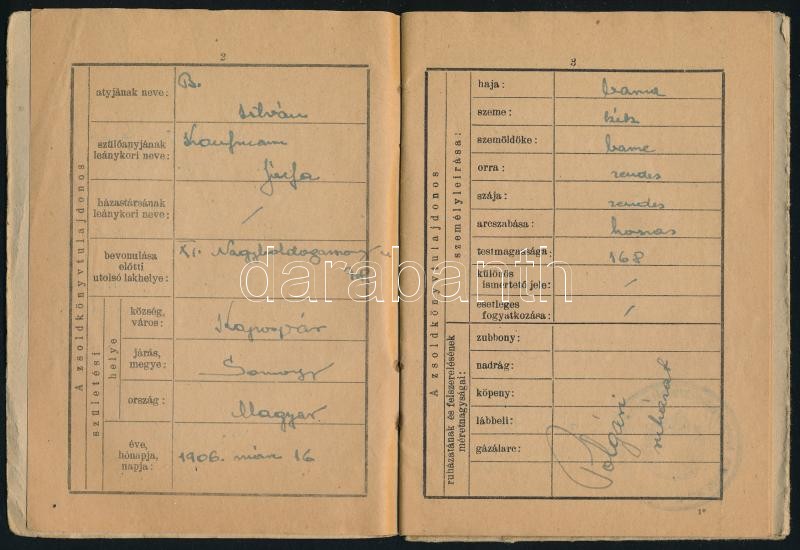 2
A zsoldkönyvtulajdonos
atyjának neve:
B.
István
szülőanyjának
leánykori neve:
Kaufmann
Józsa
házastársának
leánykori neve:
/
bevonulása
előtti
utolsó lakhelye:
XI. Nagyboldogasszony u
születési
helye
község,
város:
Kaposvár
járás,
megye:
Somogy
ország:
Magyar
éve,
hónapja,
napja:
1906. márc 16
3
A zsoldkönyvtulajdonos
személyleírása:
haja:
barna
szeme:
kék
szemöldöke:
barna
orra:
rendes
szája:
rendes
arcszabása:
hosszas
testmagassága:
168
különös
ismertető jele:
/
esetleges
fogyatkozása:
/
ruházatának és felszerelésének
méretnagyságai:
zubbony:
nadrág:
köpeny:
lábbeli:
gázálarc:
Polgári
ruházat
1*
darabanth